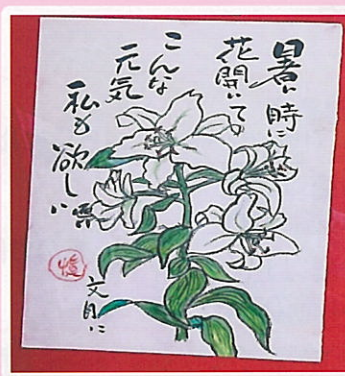 暑い時に
花開いて
こんな
元気
私も欲しい
文月に